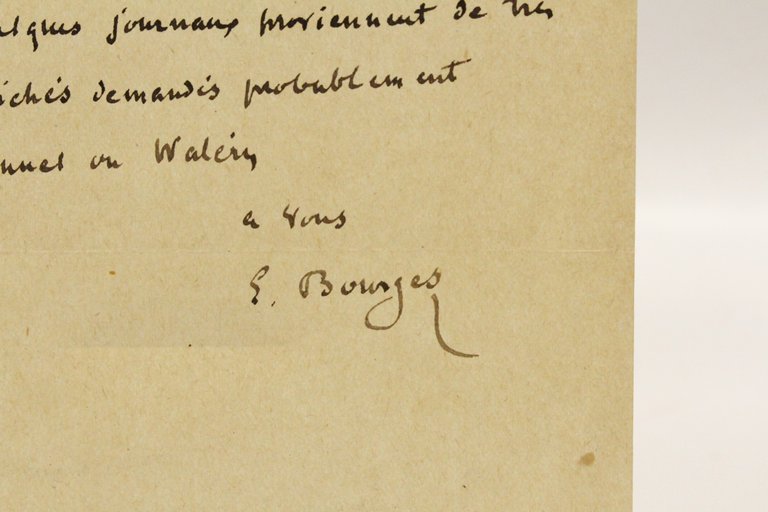 elques journaux proviennent de très
ichés demandés probablement
ou Walery
a vous
E. Bourges